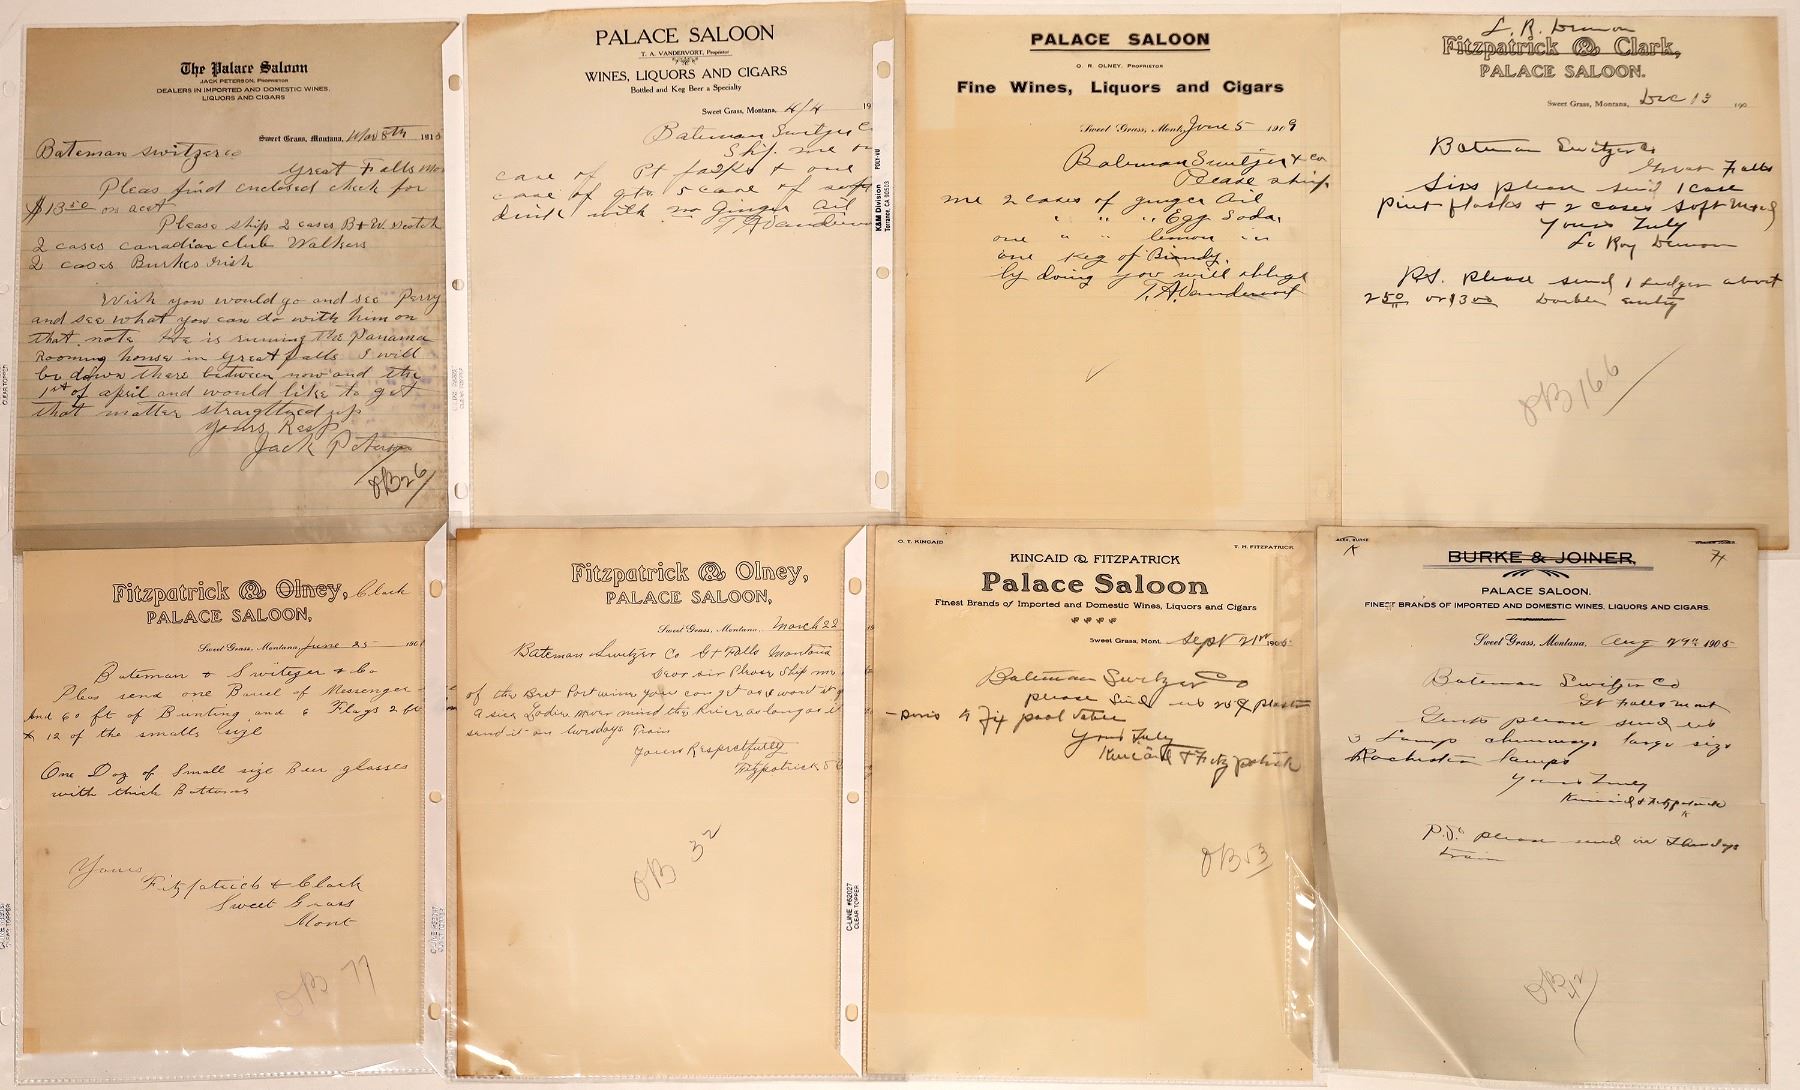 The Palace Saloon
JACK PETERSON, PROPRIETOR
DEALERS IN IMPORTED AND DOMESTIC WINES,
LIQUORS AND CIGARS
Sweet Grass, Montana, Mar 8th 191
Bateman switzer co
Great Falls Mo
Pleas find enclosed check for
$13.50 on acct
Please ship 2 cases B+W. scotch
2 cases canadian club Walkers
2 cases Burkes Irish
Wish you would go and see Perry
and see what you can do with him on
that note He is running the Panama
Rooming house in Great falls I will
be down there between now and the
1st of april and would like to get
that matter straigttned up
yours Resp
Jack Peterson
OB 26
PALACE SALOON
T. A. VANDERVORT, Proprietor
WINES, LIQUORS AND CIGARS
Bottled and Keg Beer a Specialty
Sweet Grass, Montana, 4/4 19
Bateman Switzer C
Ship me on
case of Pt flasks + one
case of qts 5 case of soft
drink with no Ginger Ail
T. A Vanderv
K&M Division POLY-VU
Torrance, CA 90503
PALACE SALOON
O. R. OLNEY, PROPRIETOR
Fine Wines, Liquors and Cigars
Sweet Grass, Mont, June 5 1909
Bateman Switzer + co
Please ship
me 2 cases of ginger Ail
" " " Egg Soda,
one " " lemon
one keg of Brandy.
by doing you will oblige
T. A Vandervort
L. R. Demon
Fitzpatrick & Clark,
PALACE SALOON.
Sweet Grass, Montana, Dec 13 190
Bateman Switzer Co
Great Falls
Sirs please send 1 case
pint flasks + 2 cases soft
Yours Truly
Le Roy Demon
P.S. please send 1 Ledger about
2 50 or $3 00 Double entry
OB 166
Fitzpatrick & Olney, Clark
PALACE SALOON,
Sweet Grass, Montana, June 25 190
Bateman & Switzger & Co
Pleas send one Barrel of Messenger
And 60 ft of Bunting and 6 Flags 2 ft
& 12 of the smalls size
One Doz of Small size Beer glasses
with thick Bottoms
Yours
Fitzpatrick & Clark
Sweet Grass
Mont
OB 77
Fitzpatrick & Olney,
PALACE SALOON,
Sweet Grass, Montana, March 22
Bateman Switzer Co Gt Falls Montana
Dear sir Please Ship me
of the Best Port wine you can get as I want it
send it on tuesdays Train
Yours Respectfully
Fitzpatrick
OB 32
C-LINE #62027
CLEAR TOPPER
O. T. KINCAID
T. H. FITZPATRICK
KINCAID & FITZPATRICK
Palace Saloon
Finest Brands of Imported and Domestic Wines, Liquors and Cigars
Sweet Grass, Mont. Sept 21st 1905
Bateman Switzer Co
please send us 25 #
Paris to fix pool table
Yours Truly
Kincaid & Fitzpatrick
OB 53
ALEX. BURKE
BURKE & JOINER,
PALACE SALOON.
FINEST BRANDS OF IMPORTED AND DOMESTIC WINES, LIQUORS AND CIGARS.
Sweet Grass, Montana, Aug 29th 1905
Bateman Switzer Co
Gt Falls Mont
Gents please send us
3 Lamp chimneys large size
Rochester lamps
Yours Truly
Kincaid & Fitzpatrick
P.S. please send on Thursdays
train
OB 42